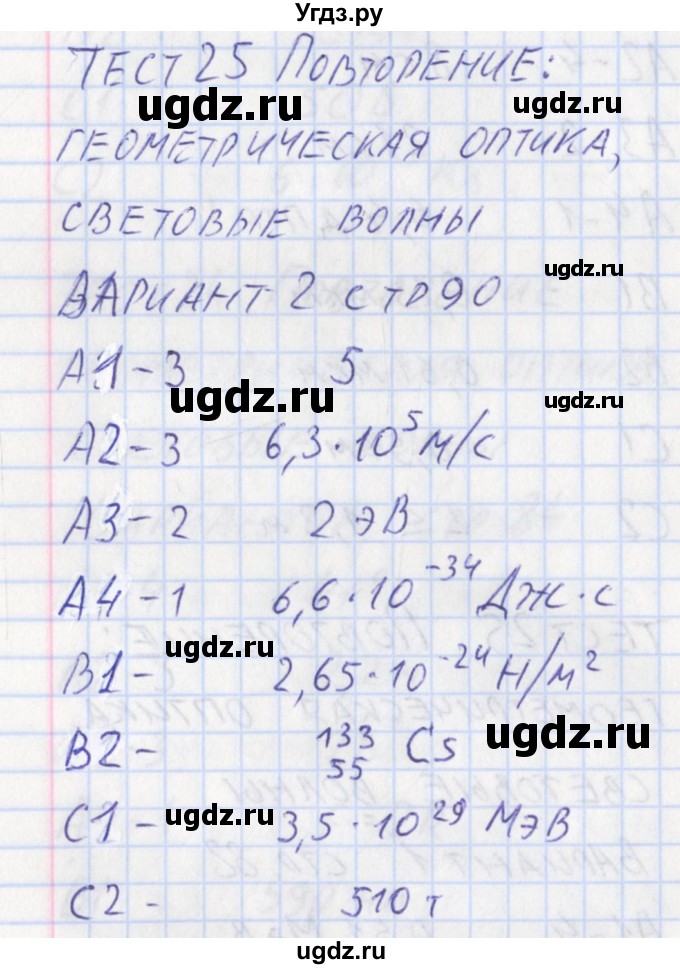 Угдз.ру
ТЕСТ 25 ПОВТОРЕНИЕ:
ugdz.ru
ГЕОМЕТРИЧЕСКАЯ ОПТИКА,
СВЕТОВЫЕ ВОЛНЫ
ugdz.ru
ВАРИАНТ 2 СТР 90
А1 - 3 5
ugdz.ru ugdz.ru
А2 - 3 6,3·10⁵ м/с
А3 - 2 2 эВ
А4 - 1 6,6·10⁻³⁴ Дж·с
ugdz.ru
В1 - 2,65·10⁻²⁴ Н/м²
ugdz.ru
В2 - ¹³³₅₅ Cs
С1 - ugdz.ru 3,5·10²⁹ МэВ
С2 - 510 т
ugdz.ru